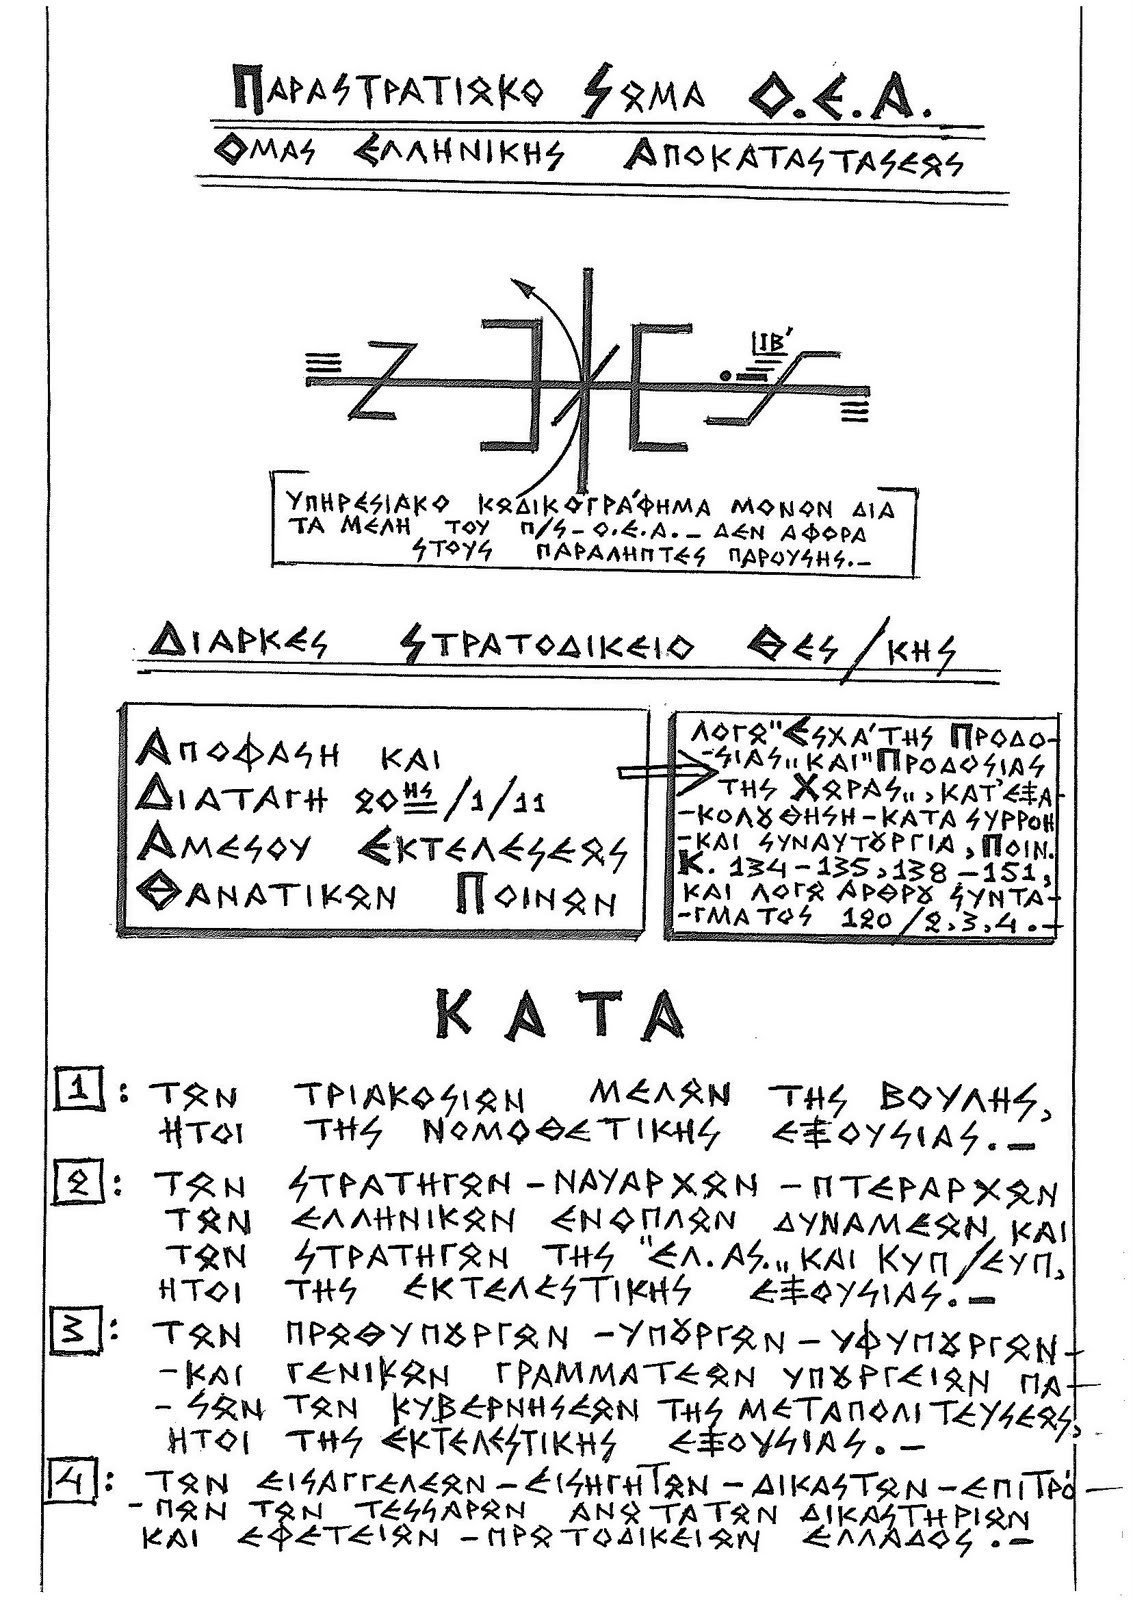 ΠΑΡΑΣΤΡΑΤΙΩΚΟ ΣΩΜΑ Ο.Ε.Α.
ΟΜΑΣ ΕΛΛΗΝΙΚΗΣ ΑΠΟΚΑΤΑΣΤΑΣΕΩΣ
ΙΒ'
ΥΠΗΡΕΣΙΑΚΟ ΚΩΔΙΚΟΓΡΑ΄ΦΗΜΑ ΜΟΝΟΝ ΔΙΑ
ΤΑ ΜΕΛΗ ΤΟΥ Π/Σ-Ο.Ε.Α.- ΔΕΝ ΑΦΟΡΑ
ΣΤΟΥΣ ΠΑΡΑΛΗΠΤΕΣ ΠΑΡΟΥΣΗΣ.-
ΔΙΑΡΚΕΣ ΣΤΡΑΤΟΔΙΚΕΙΟ ΘΕΣ/ΚΗΣ
ΑΠΟΦΑΣΗ ΚΑΙ
ΔΙΑΤΑΓΗ 20ΗΣ/1/11
ΑΜΕΣΟΥ ΕΚΤΕΛΕΣΕΩΣ
ΘΑΝΑΤΙΚΩΝ ΠΟΙΝΩΝ
ΛΟΓΩ "ΕΣΧΑ΄ΤΗΣ ΠΡΟΔΟ-
-ΣΙΑΣ,, ΚΑΙ "ΠΡΟΔΟΣΙΑΣ
ΤΗΣ ΧΩΡΑΣ,,, ΚΑΤ'ΕΞΑ-
-ΚΟΛΟΥΘΗΣΗ-ΚΑΤΑ ΣΥΡΡΟΗ
-ΚΑΙ ΣΥΝΑΥΤΟΥΡΓΙΑ, ΠΟΙΝ.
Κ. 134-135, 138-151,
ΚΑΙ ΛΟΓΩ ΑΡΘΡΟΥ ΣΥΝΤΑ-
-ΓΜΑΤΟΣ 120/2,3,4.-
ΚΑΤΑ
1: ΤΩΝ ΤΡΙΑΚΟΣΙΩΝ ΜΕΛΩΝ ΤΗΣ ΒΟΥΛΗΣ,
ΗΤΟΙ ΤΗΣ ΝΟΜΟΘΕΤΙΚΗΣ ΕΞΟΥΣΙΑΣ.-
2: ΤΩΝ ΣΤΡΑΤΗΓΩΝ-ΝΑΥΑΡΧΩΝ-ΠΤΕΡΑΡΧΩΝ
ΤΩΝ ΕΛΛΗΝΙΚΩΝ ΕΝΟΠΛΩΝ ΔΥΝΑΜΕΩΝ, ΚΑΙ
ΤΩΝ ΣΤΡΑΤΗΓΩΝ ΤΗΣ "ΕΛ.ΑΣ.,, ΚΑΙ ΚΥΠ/ΕΥΠ,
ΗΤΟΙ ΤΗΣ ΕΚΤΕΛΕΣΤΙΚΗΣ ΕΞΟΥΣΙΑΣ.-
3: ΤΩΝ ΠΡΩΘΥΠΟΥΡΓΩΝ-ΥΠΟΥΡΓΩΝ-ΥΦΥΠΟΥΡΓΩΝ-
-ΚΑΙ ΓΕΝΙΚΩΝ ΓΡΑΜΜΑΤΕΩΝ ΥΠΟΥΡΓΕΙΩΝ ΠΑ-
-ΣΩΝ ΤΩΝ ΚΥΒΕΡΝΗΣΕΩΝ ΤΗΣ ΜΕΤΑΠΟΛΙΤΕΥΣΕΩΣ,
ΗΤΟΙ ΤΗΣ ΕΚΤΕΛΕΣΤΙΚΗΣ ΕΞΟΥΣΙΑΣ.-
4: ΤΩΝ ΕΙΣΑΓΓΕΛΕΩΝ-ΕΙΣΗΓΗΤΩΝ-ΔΙΚΑΣΤΩΝ-ΕΠΙΤΡΟ-
-ΠΩΝ ΤΩΝ ΤΕΣΣΑΡΩΝ ΑΝΩΤΑΤΩΝ ΔΙΚΑΣΤΗΡΙΩΝ
ΚΑΙ ΕΦΕΤΕΙΩΝ-ΠΡΩΤΟΔΙΚΕΙΩΝ ΕΛΛΑΔΟΣ.-